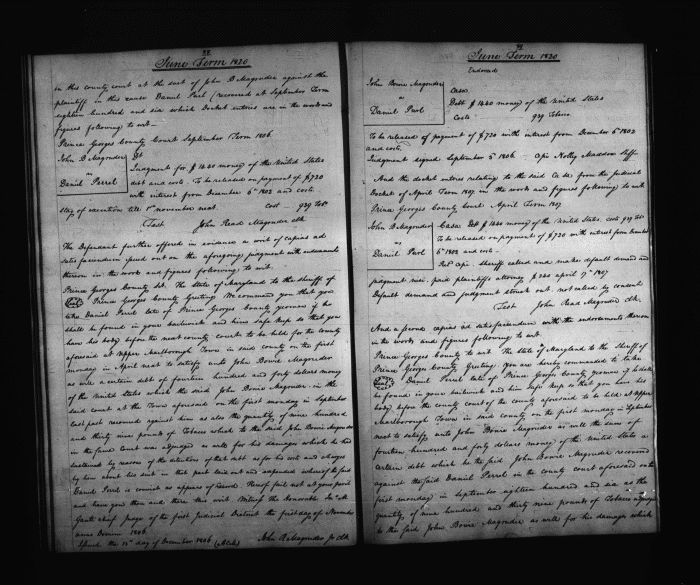 June Term 1820
in this county court at the suit of John B Magruder against the
plaintiff in this cause Daniel Purl (recovered at September Term
eighteen hundred and six which Docket entries are in the words and
figures following to wit—
Prince Georges County Court September Term 1806
John B Magruder
vs
Daniel Parrel
Judgment for $ 1440 money of the United States
debt and costs. To be released on payment of $720
with interest from December 6th 1802 and costs.
Stay of execution till 1st november next. Cost 939 Tobo
Test John Read Magruder clk.
The Defendant further offered in evidence a writ of capias ad
satisfaciendum issued out on the aforegoing judgment with endorsements
thereon in the words and figures following to wit.
Prince Georges County Sct. The State of Maryland to the sheriff of
Prince Georges County Greeting. We command you that you
take Daniel Parrel late of Prince Georges County yeoman if he
shall be found in your bailiwick and him safe keep so that you
have his body before the next county court to be held for the county
aforesaid at Upper Marlborough Town in said county on the first
monday in April next to satisfy unto John Bowie Magruder
as well a certain debt of fourteen hundred and forty dollars money
of the United States which the said John Bowie Magruder in the
said court at the Town aforesaid on the first monday in September
last past recovered against him as also the quantity of nine hundred
and thirty nine pounds of Tobacco which to the said John Bowie Magruder
in the said Court was adjudged as well for his damages which he had
sustained by reason of the detention of that debt as for his cost and charges
by him about his suit in that part laid out and expended whereof the said
Daniel Parrel is convict as appears of record. Hereof fail not at your peril
and have you then and there this writ. Witness the Honorable Jn M
Gantt chief judge of the first judicial District the first day of November
anno Domini 1806
Issued the 15th day of December 1806 John R Magruder jr clk.
June Term 1820
Endorsed
John Bowie Magruder
vs
Daniel Purl
Casa
Debt $ 1440 money of the United States
Costs 939 Tobacco
To be released of payment of $720 with interest from December 6th 1802
and costs.
Judgment signed September 5th 1806. Notley Maddox shff
And the docket entries relating to the said Ca Sa from the judicial
Docket of April Term 1807 in the words and figures following to wit
Prince Georges County Court April Term 1807
John B Magruder
vs
Daniel Purl
Casa Debt $ 1440 money of the United States. costs 939 Tobo
To be released on payment of $720 with interest from December
6th 1802 and costs.
sheriff called and makes default demand and
judgment nisi. paid plaintiffs attorney april 7th 1807
Default demand and judgment struck out. not called by consent
Test John Read Magruder clk.
And a second capias ad satisfaciendum with the endorsements thereon
in the words and figures following to wit.
Prince Georges County to wit The State of Maryland to the Sheriff of
Prince Georges County Greeting. You are hereby commanded to take
Daniel Parrel late of Prince Georges County yeoman if he shall
be found in your bailiwick and him safe keep so that you have his
body before the county court of the county aforesaid to be held at Upper
Marlborough Town in said county on the first monday in September
next to satisfy unto John Bowie Magruder as well the sum of
fourteen hundred and forty dollars money of the United States a
certain debt which the said John Bowie Magruder recovered
against the said Daniel Parrel in the county court aforesaid on the
first monday in september eighteen hundred and six as the
quantity of nine hundred and thirty nine pounds of Tobacco adjudged
to the said John Bowie Magruder as well for his damages which